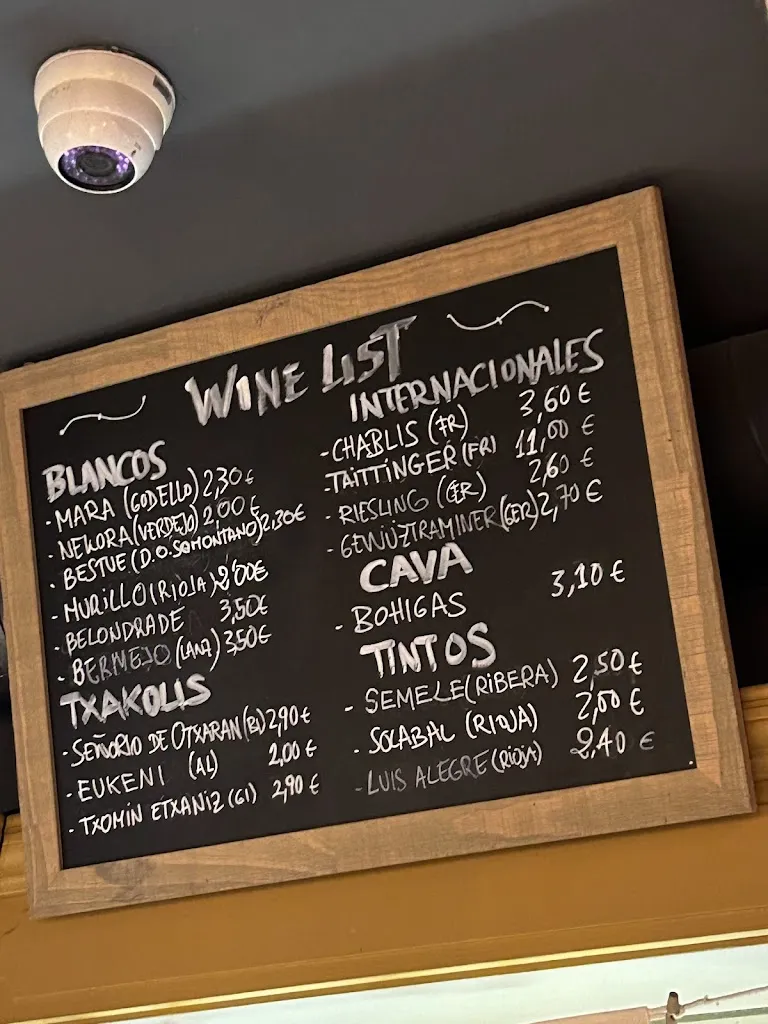 WINE LIST
BLANCOS
- MARA (GODELLO) 2,30 €
- NEKORA (VERDEJO) 2,00 €
- BESTUE (D.O. SOMONTANO) 2,30€
- MURILLO (RIOJA) 2,00€
- BELONDRADE 3,50€
- BERMEJO (LANZ) 3,50€
TXAKOLIS
- SEÑORIO DE OTXARAN (BI) 2,90 €
- EUKENI (AL) 2,00 €
- TXOMIN ETXANIZ (GI) 2,90 €
INTERNACIONALES
- CHABLIS (FR) 3,60 €
- TAITTINGER (FR) 11,00 €
- RIESLING (GER) 2,60 €
- GEWÜZTRAMINER (GER) 2,70 €
CAVA
- BOHIGAS 3,10 €
TINTOS
- SEMELE (RIBERA) 2,50 €
- SOLABAL (RIOJA) 2,00 €
- LUIS ALEGRE (RIOJA) 2,40 €